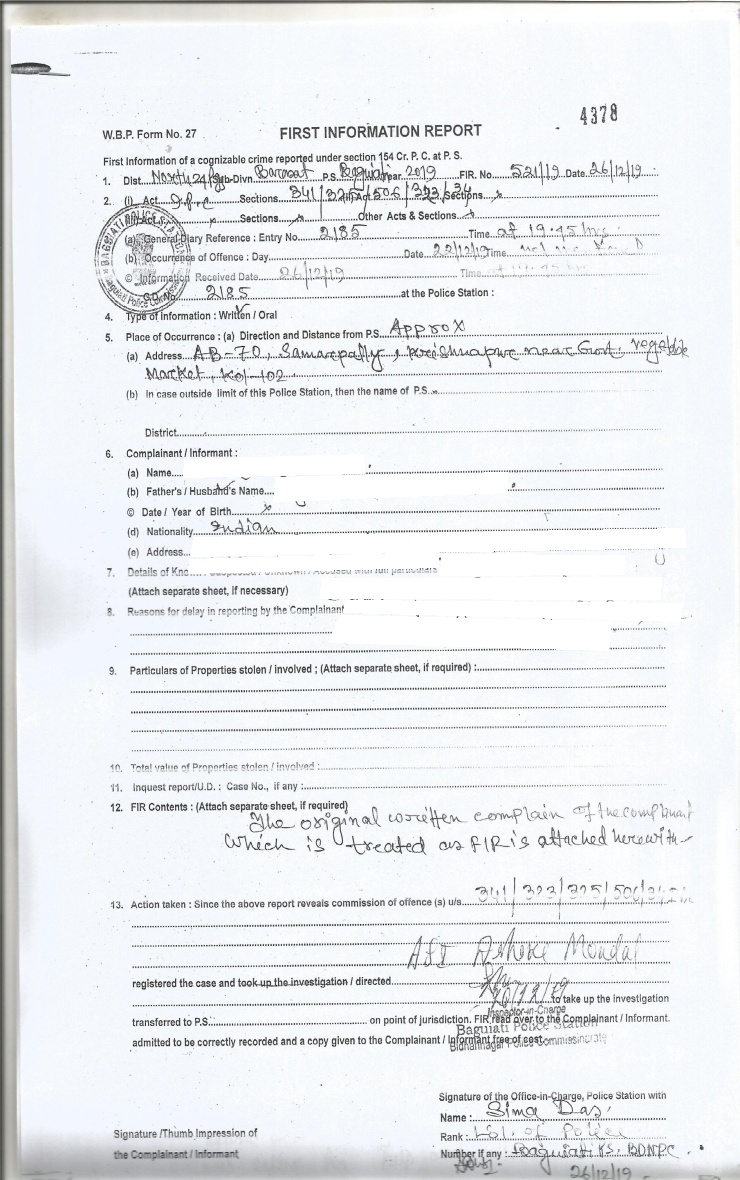 4378
W.B.P. Form No. 27 FIRST INFORMATION REPORT
First Information of a cognizable crime reported under section 154 Cr. P. C. at P. S.
1. Dist. North 24 Sub-Divn. Barasat P.S. Baguiati Year 2019 FIR. No. 521/19 Date. 26/12/19
2. (i) Act I.P.C Sections 341/325/506/323/34 Sections x
Sections x Other Acts & Sections x
(a) General Diary Reference : Entry No. 2185 Time at 19.45 hrs
(b) Occurrence of Offence : Day Date 22/12/19 Time
© Information Received Date 26/12/19 Time at 19.45 hrs
2185 at the Police Station :
BAGUIATI POLICE STATION
4. Type of Information : Written / Oral
5. Place of Occurrence : (a) Direction and Distance from P.S. Approx
(a) Address AB-70, Samarpally, Krishnapur near Govt. vegetable
Market, Kol-102
(b) In case outside limit of this Police Station, then the name of P.S.
District
6. Complainant / Informant :
(a) Name
(b) Father's / Husband's Name
© Date / Year of Birth x
(d) Nationality Indian
(e) Address
7. Details of
(Attach separate sheet, if necessary)
8. Reasons for delay in reporting by the Complainant
9. Particulars of Properties stolen / involved ; (Attach separate sheet, if required) :
10. Total value of Properties stolen / involved :
11. Inquest report/U.D. : Case No., if any :
12. FIR Contents : (Attach separate sheet, if required)
The original written complain of the complainant
which is treated as FIR is attached herewith
13. Action taken : Since the above report reveals commission of offence (s) u/s. 341/323/325/506/34
ASI Ashoke Mondal
registered the case and took up the investigation / directed
26/12/19 to take up the investigation
Inspector-in-Charge
transferred to P.S. on point of jurisdiction. FIR read over to the Complainant / Informant.
Baguiati Police Station
admitted to be correctly recorded and a copy given to the Complainant / Informant free of cost.
Bidhannagar Police Commissionerate
Signature of the Office-in-Charge, Police Station with
Name : Sima Das
Signature /Thumb Impression of Rank : of Police
the Complainant / Informant Number if any : Baguiati P.S. BDNPC
26/12/19